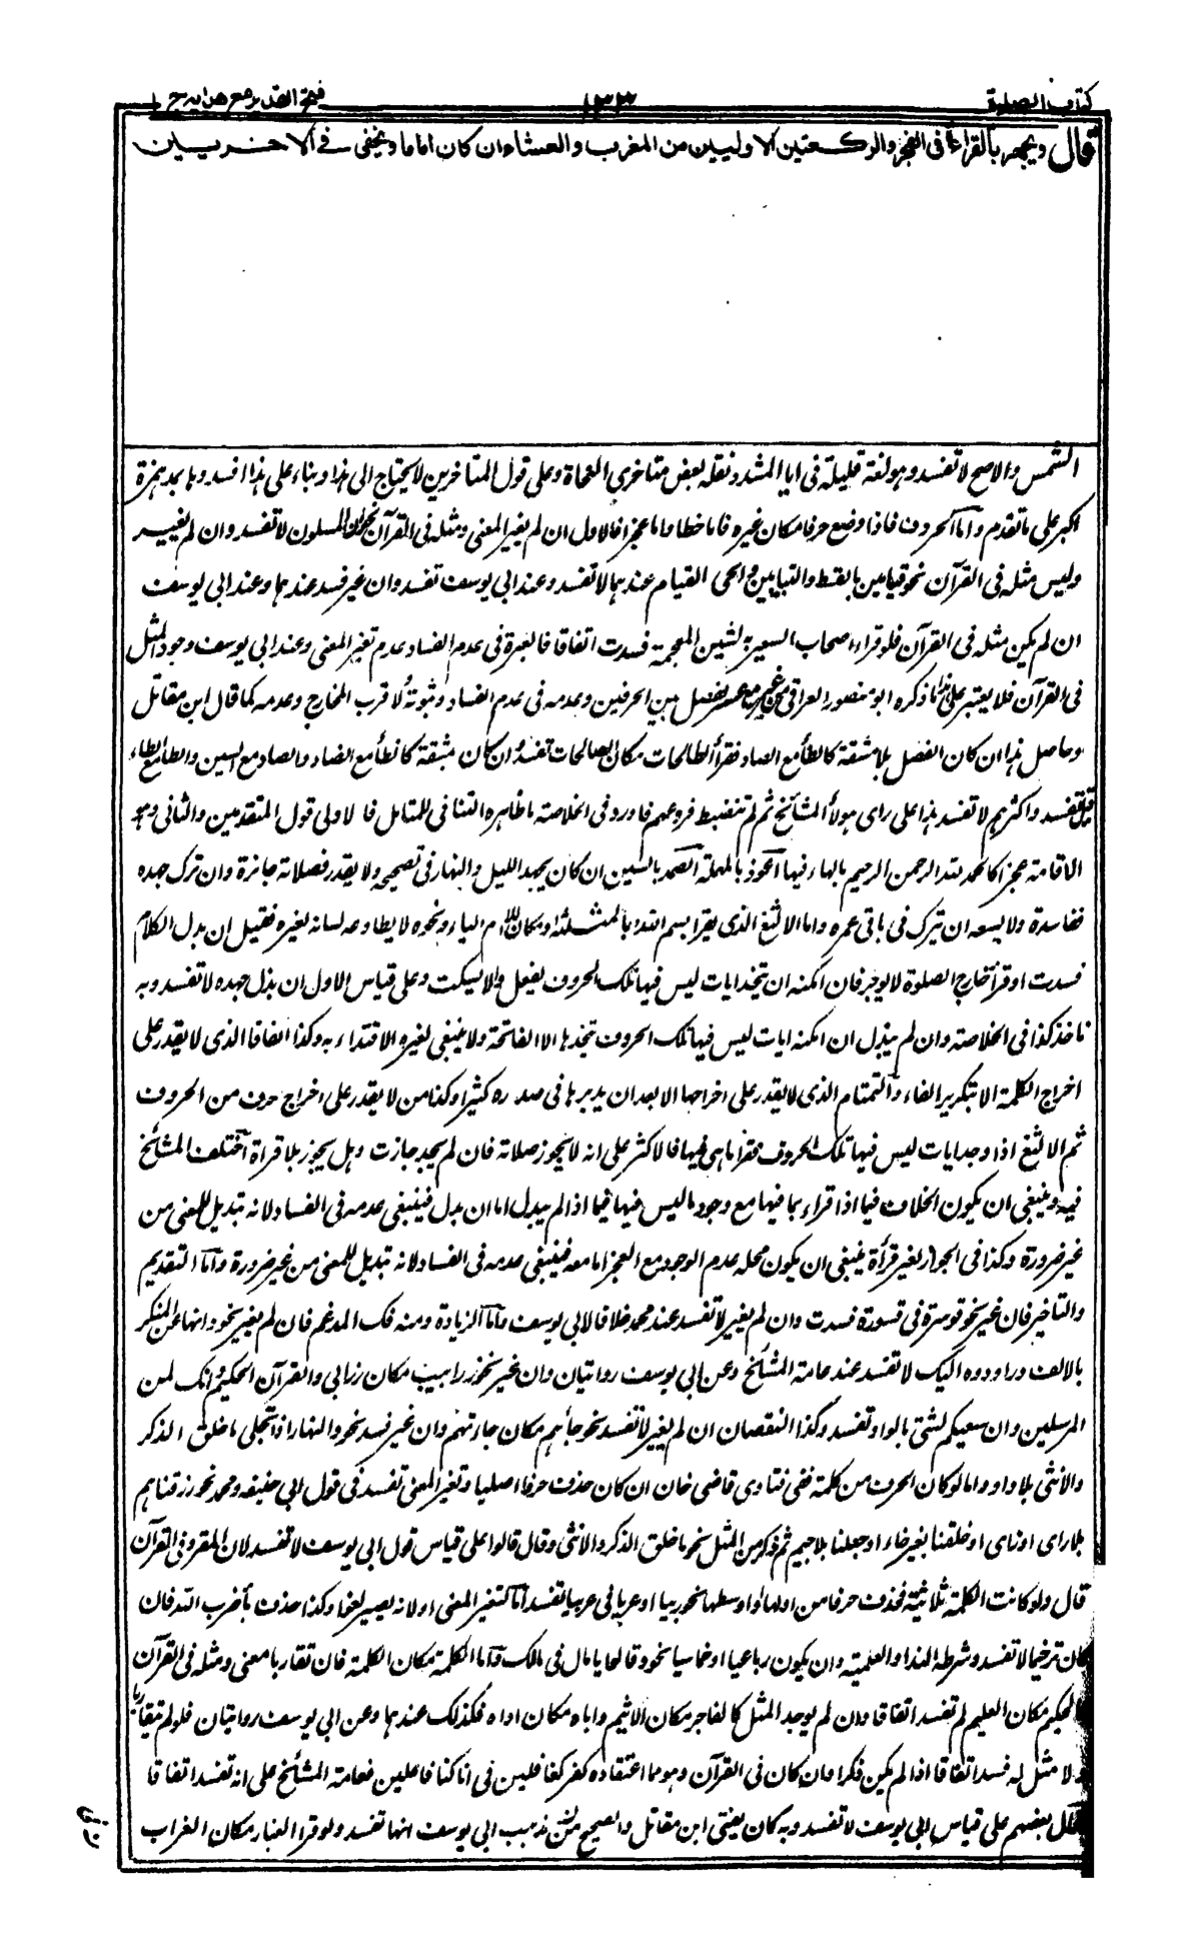 كتاب الصلوة
١٣٣
فتح القدير مع هدايه ج ١
قال ويجهر بالقراءة فى الفجر والركعتين الاوليين من المغرب والعشاء ان كان اماما ويخفى فى الاخريين
الشمس والاصح لا تفسد وهو لغة قليلة فى ايا المشدد ونقله بعض متاخرى النحاة وعلى قول المتاخرين لا يحتاج الى هذا وبناء على هذا افسدوها بمد همزة
اكبر على ما تقدم واما الحروف فاذا وضع حرفا مكان غيره فاما خطا واما عجزا فالاول ان لم يغير المعنى ومثله فى القرآن نحو ان المسلمون لا تفسد وان لم يغير
وليس مثله فى القرآن نحو قيامين بالقسط والتيابين والحى القيام عندهما لا تفسد وعند ابى يوسف تفسد وان غير فسد عندهما وعند ابى يوسف
ان لم يكن مثله فى القرآن فلو قراء اصحاب السعير بالشين المعجمة فسدت اتفاقا فالعبرة فى عدم الفساد عدم تغير المعنى وعند ابى يوسف وجود المثل
فى القرآن فلا يعتبر على هذا ما ذكره ابو منصور العراقى من عسر الفصل بين الحرفين وعدمه فى عدم الفساد وثبوته ولا قرب المخارج وعدمه كما قال ابن مقاتل
وحاصل هذا ان كان الفصل بلا مشقة كالطاء مع الصاد فقرأ الطالحات مكان الصالحات تفسد وان كان بمشقة كالظاء مع الضاد والصاد مع السين والطاء مع التاء
قيل تفسد واكثرهم لا تفسد هذا على راى هولاء المشائخ ثم لم تنضبط فروعهم فاورد فى الخلاصة ما ظاهره التنافى للمتامل فالاولى قول المتقدمين والثانى وهو
الاقامة عجزا كالحمد لله الرحمن الرحيم بالهاء فيها اعوذ بالمهملة الصمد بالسين ان كان يجهد الليل والنهار فى تصحيحه ولا يقدر فصلاته جائزة وان ترك جهده
ففاسدة ولا يسعه ان يترك فى باقى عمره واما الالثغ الذى يقرا بسم الله بالمثلثة او مكان اللام الياء ونحوه لا يطاوعه لسانه لغيره فقيل ان بدل الكلام
فسدت او قرأ خارج الصلوة لا يوجر فان امكنه ان يتخذ ايات ليس فيها تلك الحروف يفعل والا يسكت وعلى قياس الاول ان بذل جهده لا تفسد وبه
ناخذ كذا فى الخلاصة وان لم يبذل ان امكنه ايات ليس فيها تلك الحروف يتخذها الا الفاتحة ولا ينبغى لغيره الاقتداء به وكذا الفافا الذى لا يقدر على
اخراج الكلمة الا بتكرير الفاء والتمتام الذى لا يقدر على اخراجها الا بعد ان يديرها فى صدره كثيرا وكذا من لا يقدر على اخراج حرف من الحروف
ثم الالثغ اذا وجد ايات ليس فيها تلك الحروف فقرا ما هى فيها فالاكثر على انه لا يجوز صلاته فان لم يجد جازت وهل يجوز بلا قراة اختلف المشائخ
فيه وينبغى ان يكون الخلاف فيما اذا قراء بما فيها مع وجود ما ليس فيها فيما اذا لم يبدل اما ان بدل فينبغى عدمه فى الفساد لانه تبديل للمعنى من
غير ضرورة وكذا فى الجواز لغير قرأة ينبغى ان يكون محله عدم الوجود مع العجز اما معه فينبغى عدمه فى الفساد لانه تبديل للمعنى من غير ضرورة واما التقديم
والتاخير فان غير نحو قوسرة فى قسورة فسدت وان لم يغير لا تفسد عند محمد خلافا لابى يوسف واما الزيادة ومنه فك المدغم فان لم يغير نحو وانها عن المنكر
بالالف وراددوه اليك لا تفسد عند عامة المشائخ وعن ابى يوسف روايتان وان غير نحو زرابيب مكان زرابى والقرآن الحكيم وانك لمن
المرسلين وان سعيكم لشتى بالواو تفسد وكذا النقصان ان لم يغير لا تفسد نحو جاءهم مكان جاءتهم وان غير فسد نحو والنهار اذا تجلى ما خلق الذكر
والانثى بلا واو واما لو كان الحرف من كلمة ففى فتاوى قاضى خان ان كان حذف حرفا اصليا وتغير المعنى تفسد فى قول ابى حنيفه ومحمد نحو رزقناهم
بلا راى او زاى او خلقنا بغير خاء او جعلنا بلا جيم ثم ذكر من المثل نحو ما خلق الذكر والانثى وقال قالوا على قياس قول ابى يوسف لا تفسد لان المقروء فى القرآن
قال ولو كانت الكلمة ثلاثية فحذف حرفا من اولها او اوسطها نحو ربيا او عربا فى عربيا تفسد اما لتغير المعنى او لانه يصير لغوا وكذا حذف باء ضرب الله فان
كان ترخيما لا تفسد وشرطه النداء والعلمية وان يكون رباعيا او خماسيا نحو وقالوا يا مال فى مالك واما الكلمة مكان الكلمة فان تقاربا معنى ومثله فى القرآن
كالحكيم مكان العليم لم تفسد اتفاقا وان لم يوجد المثل كالفاجر مكان الاثيم واياه مكان اواه فكذلك عندهما وعن ابى يوسف روايتان فلو لم يتقاربا
ولا مثل له فسد اتفاقا اذا لم يكن ذكرا وان كان فى القرآن وهو مما اعتقاده كفر كغافلين فى انا كنا فاعلين فعامة المشائخ على انه تفسد اتفاقا
وقال بعضهم على قياس ابى يوسف لا تفسد وبه كان يفتى ابن مقاتل والصحيح من مذهب ابى يوسف انها تفسد ولو قرا الغبار مكان الغراب